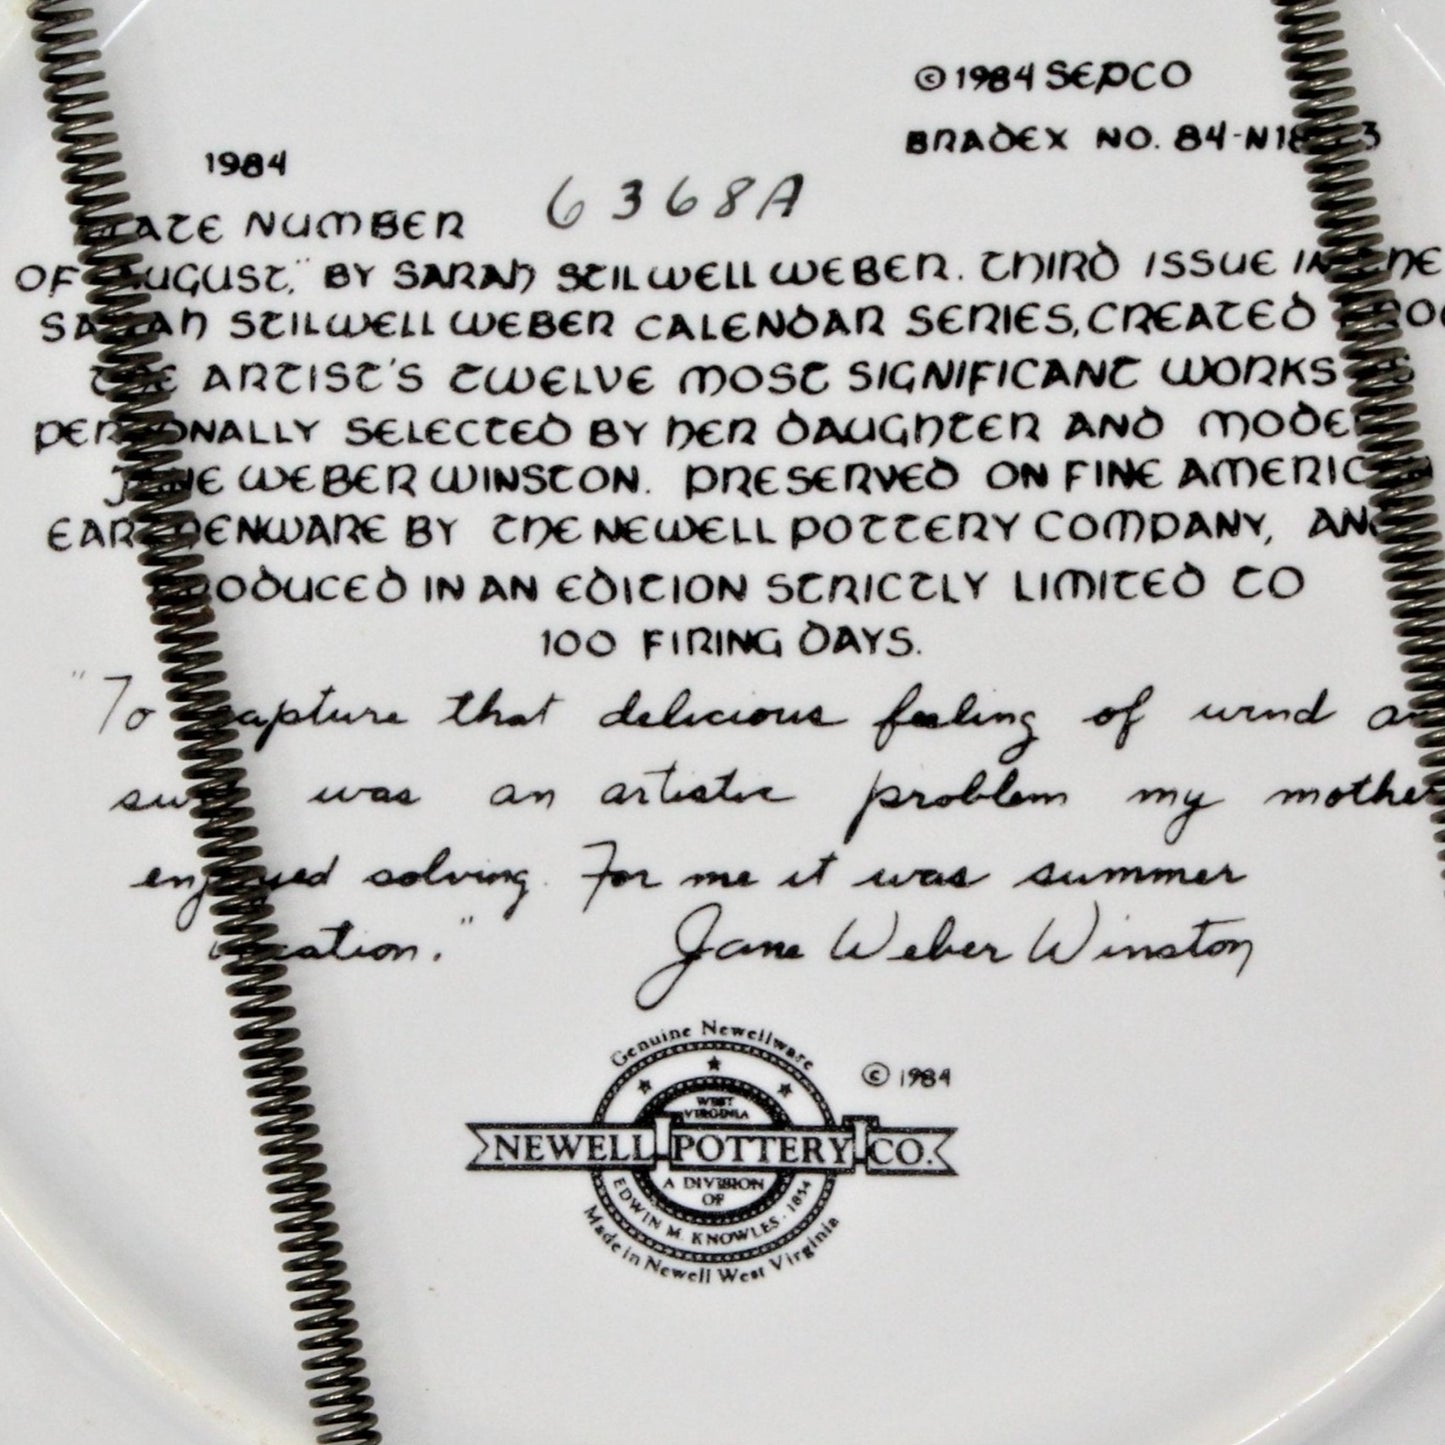 © 1984 SEPCO
BRADEX NO. 84-N18
1984
NUMBER 6368A
OF BY SARAH STILWELL WEBER. THIRD ISSUE IN
STILWELL WEBER CALENDAR SERIES, CREATED
ARTIST'S TWELVE MOST SIGNIFICANT WORKS
SELECTED BY HER DAUGHTER AND
WEBER WINSTON. PRESERVED ON FINE
BY THE NEWELL POTTERY COMPANY,
IN AN EDITION STRICTLY LIMITED TO
100 FIRING DAYS.
"To capture that delicious feeling of wind
was an artistic problem my mother
enjoyed solving. For me it was summer
vacation." Jane Weber Winston
Genuine Newellware
© 1984
WEST
VIRGINIA
NEWELL POTTERY CO.
A DIVISION
OF
EDWIN M. KNOWLES · 1854
Made in Newell West Virginia